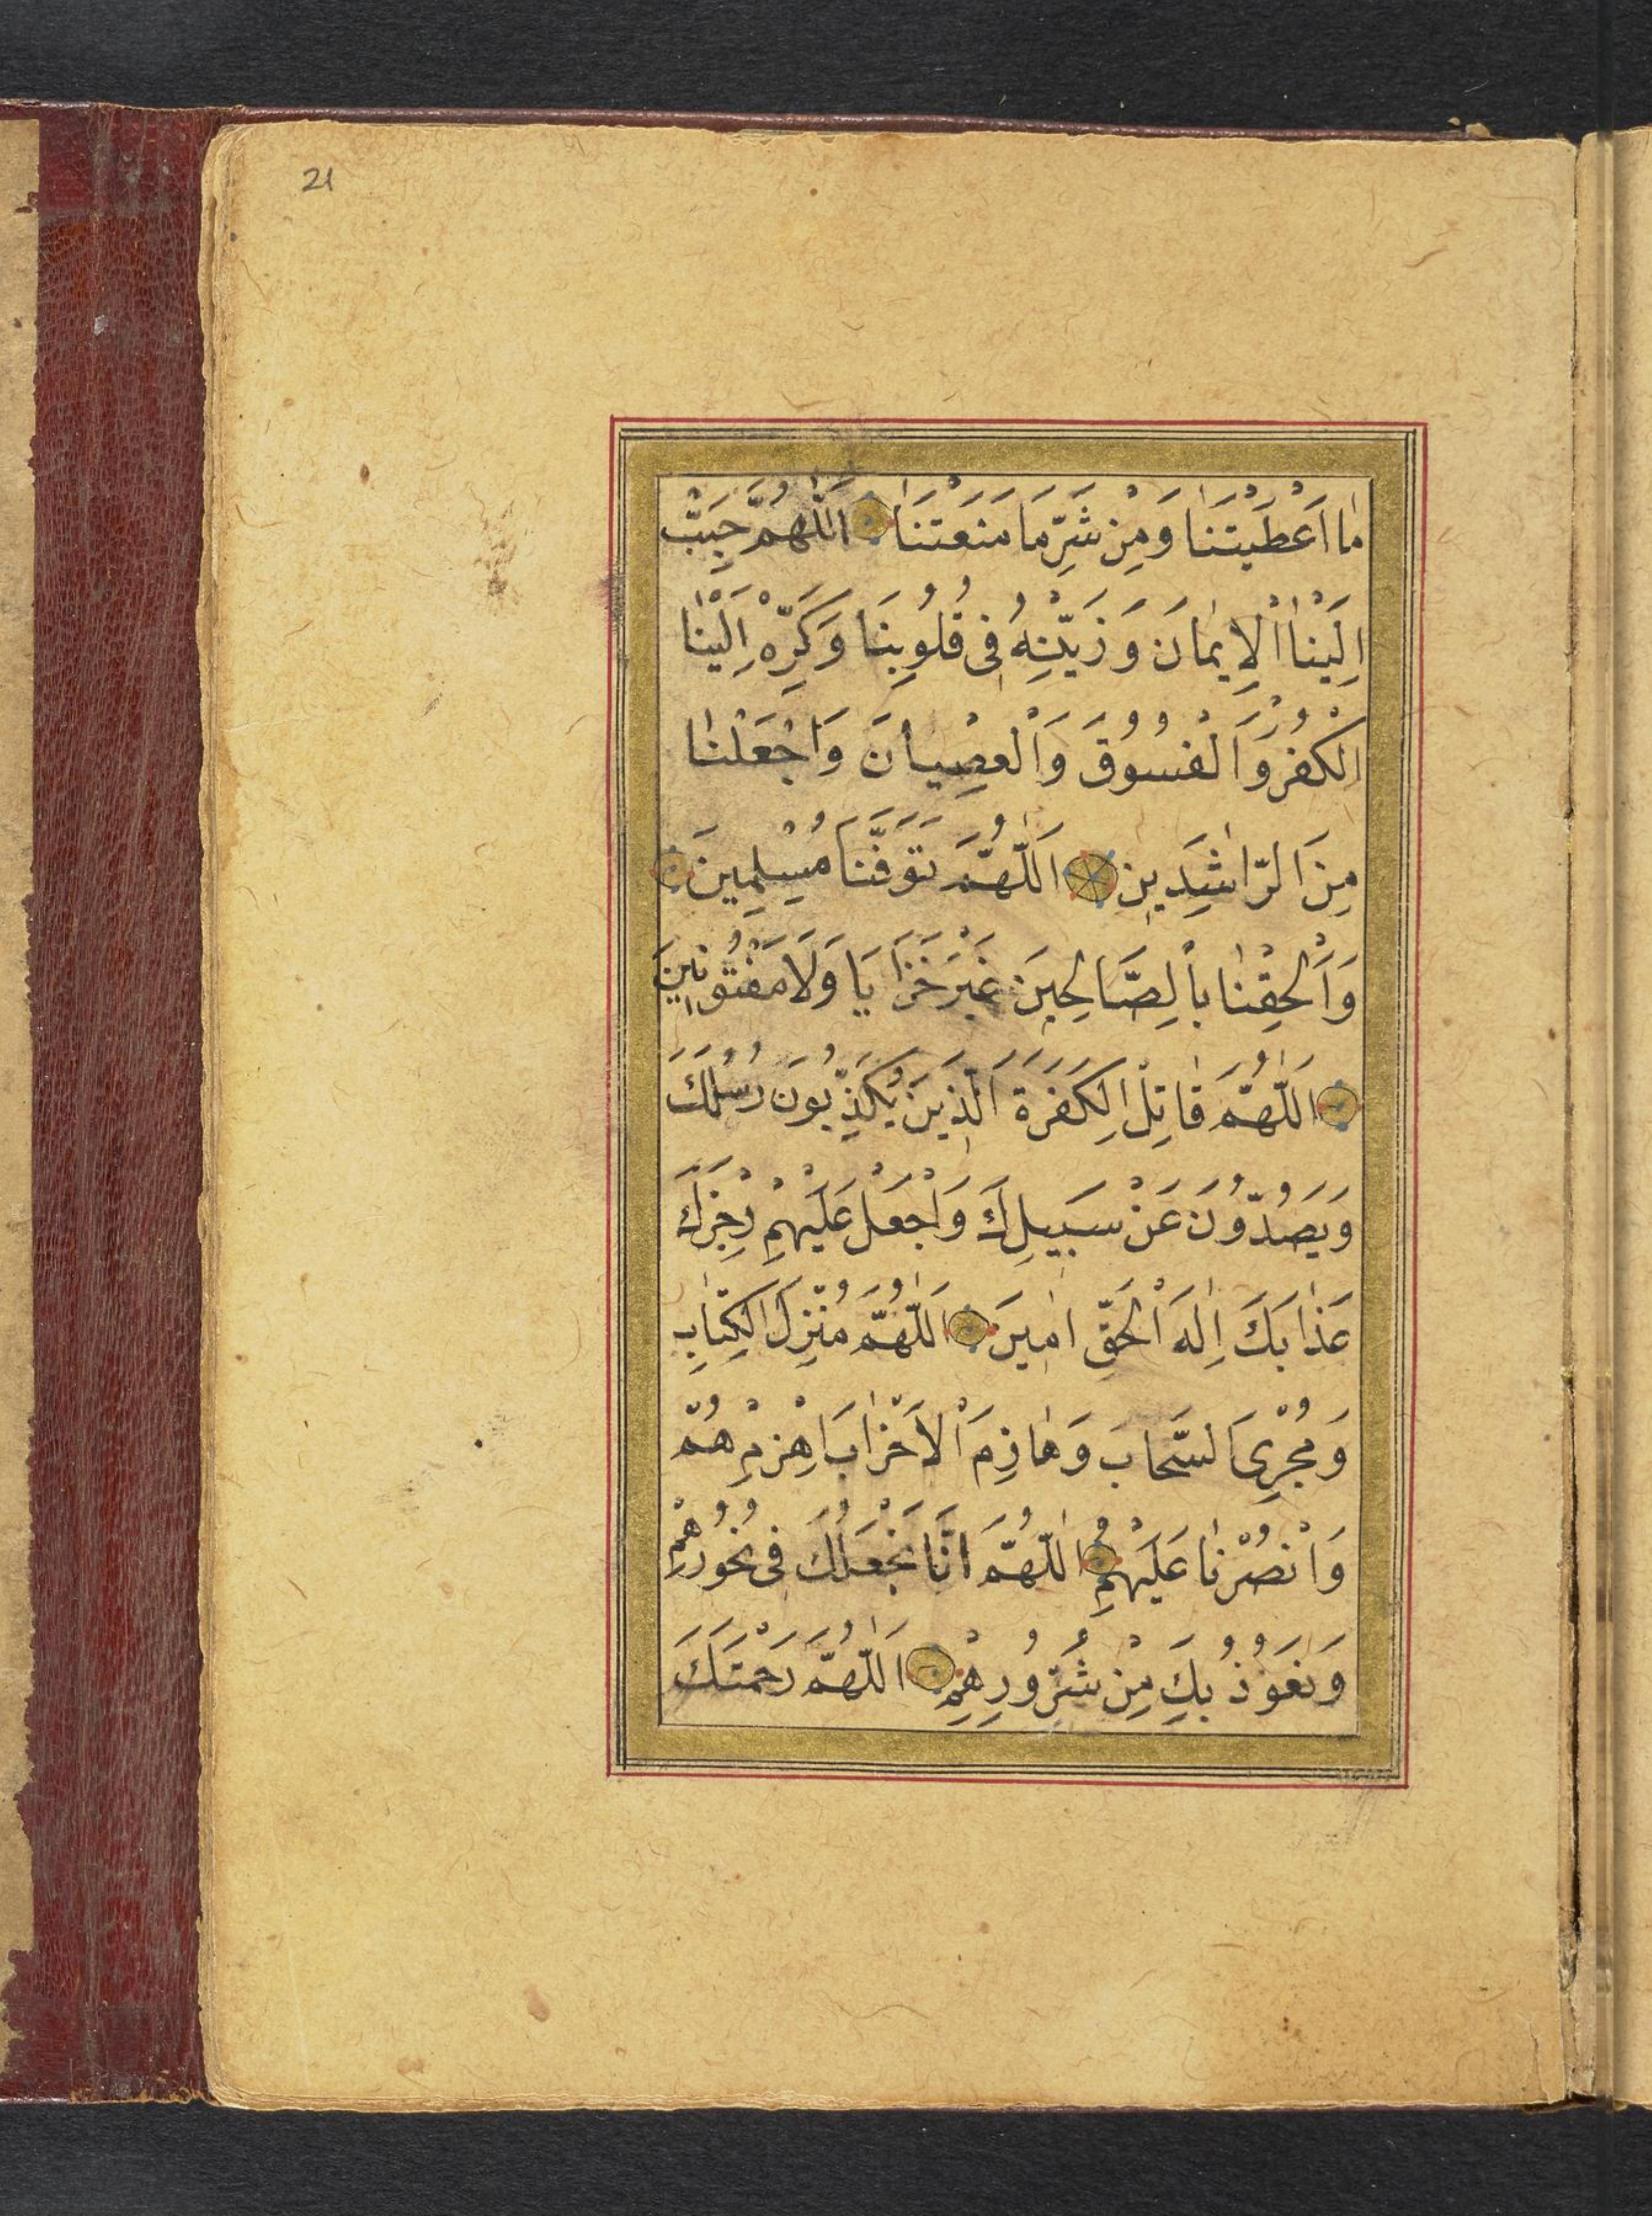 21
مٰا اَعْطَيْتَنٰا وَمِنْ شَرِّ مَا مَنَعْتَنَا اَللّٰهُمَّ حَبِّبْ
اِلَيْنٰا الْاِيمٰانَ وَزَيِّنْهُ فِى قُلُوبِنَا وَكَرِّهْ اِلَيْنٰا
الْكُفْرَ وَالْفُسُوقَ وَالْعِصْيانَ وَاجْعَلْنٰا
مِنَ الرّٰاشِدَينِ اَللّٰهُمَّ تَوَفَّنَا مُسْلِمِينَ
وَاَلْحِقْنٰا بِالصَّالِحِينَ غَيْرَ خَزَايَا وَلَا مَفْتُونِينَ
اَللّٰهُمَّ قَاتِلْ الْكَفَرَةَ الَّذِينَ يُكَذِّبُونَ رُسُلَكَ
وَيَصُدُّونَ عَنْ سَبِيلِكَ وَاجْعَلْ عَلَيْهِمْ رِجْزَكَ
عَذٰابَكَ اِلٰهَ الْحَقِّ اٰمِينَ اَللّٰهُمَّ مُنْزِلَ الْكِتٰابِ
وَمُجْرِىَ السَّحٰابَ وَهٰازِمَ الْاَحْزٰابَ اهْزِمْهُمْ
وَانْصُرْنٰا عَلَيْهِمْ اَللّٰهُمَّ انَّا نَجْعَلُكَ فِى نُحُورِهِمْ
وَنَعُوذُ بِكَ مِنْ شُرُورِهِمْ اَللّٰهُمَّ رَحْمَتَكَ